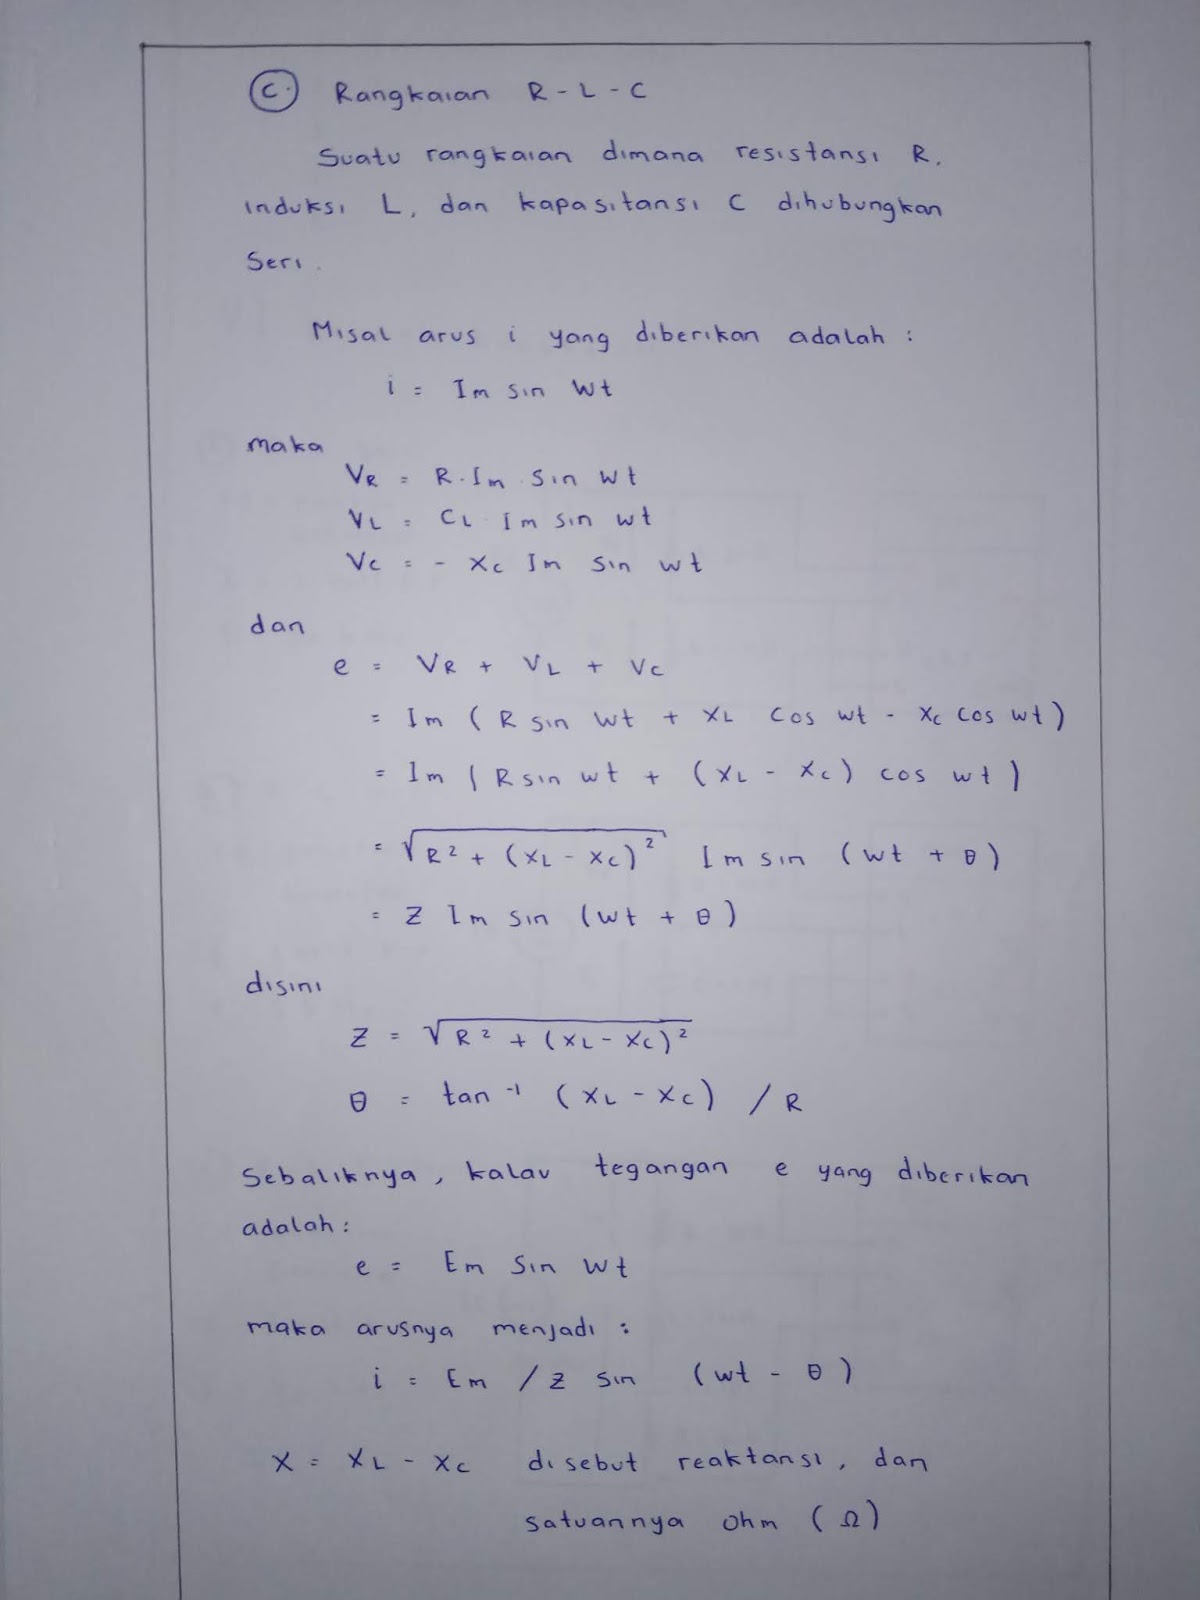 C. Rangkaian R - L - C
Suatu rangkaian dimana resistansi R,
induksi L, dan kapasitansi C dihubungkan
Seri.
Misal arus i yang diberikan adalah :
i = Im sin Wt
maka
VR = R . Im . Sin wt
VL = CL . Im sin wt
Vc = - Xc Im sin wt
dan
e = VR + VL + Vc
= Im ( R sin wt + XL cos wt - Xc cos wt )
= Im ( R sin wt + ( XL - Xc ) cos wt )
= √R² + (XL - Xc)² Im sin ( wt + θ )
= Z Im sin ( wt + θ )
disini
Z = √R² + (XL - Xc)²
θ = tan⁻¹ ( XL - Xc ) / R
Sebaliknya, kalau tegangan e yang diberikan
adalah :
e = Em Sin Wt
maka arusnya menjadi :
i = Em / Z sin ( wt - θ )
X = XL - Xc disebut reaktansi, dan
satuannya ohm ( Ω )